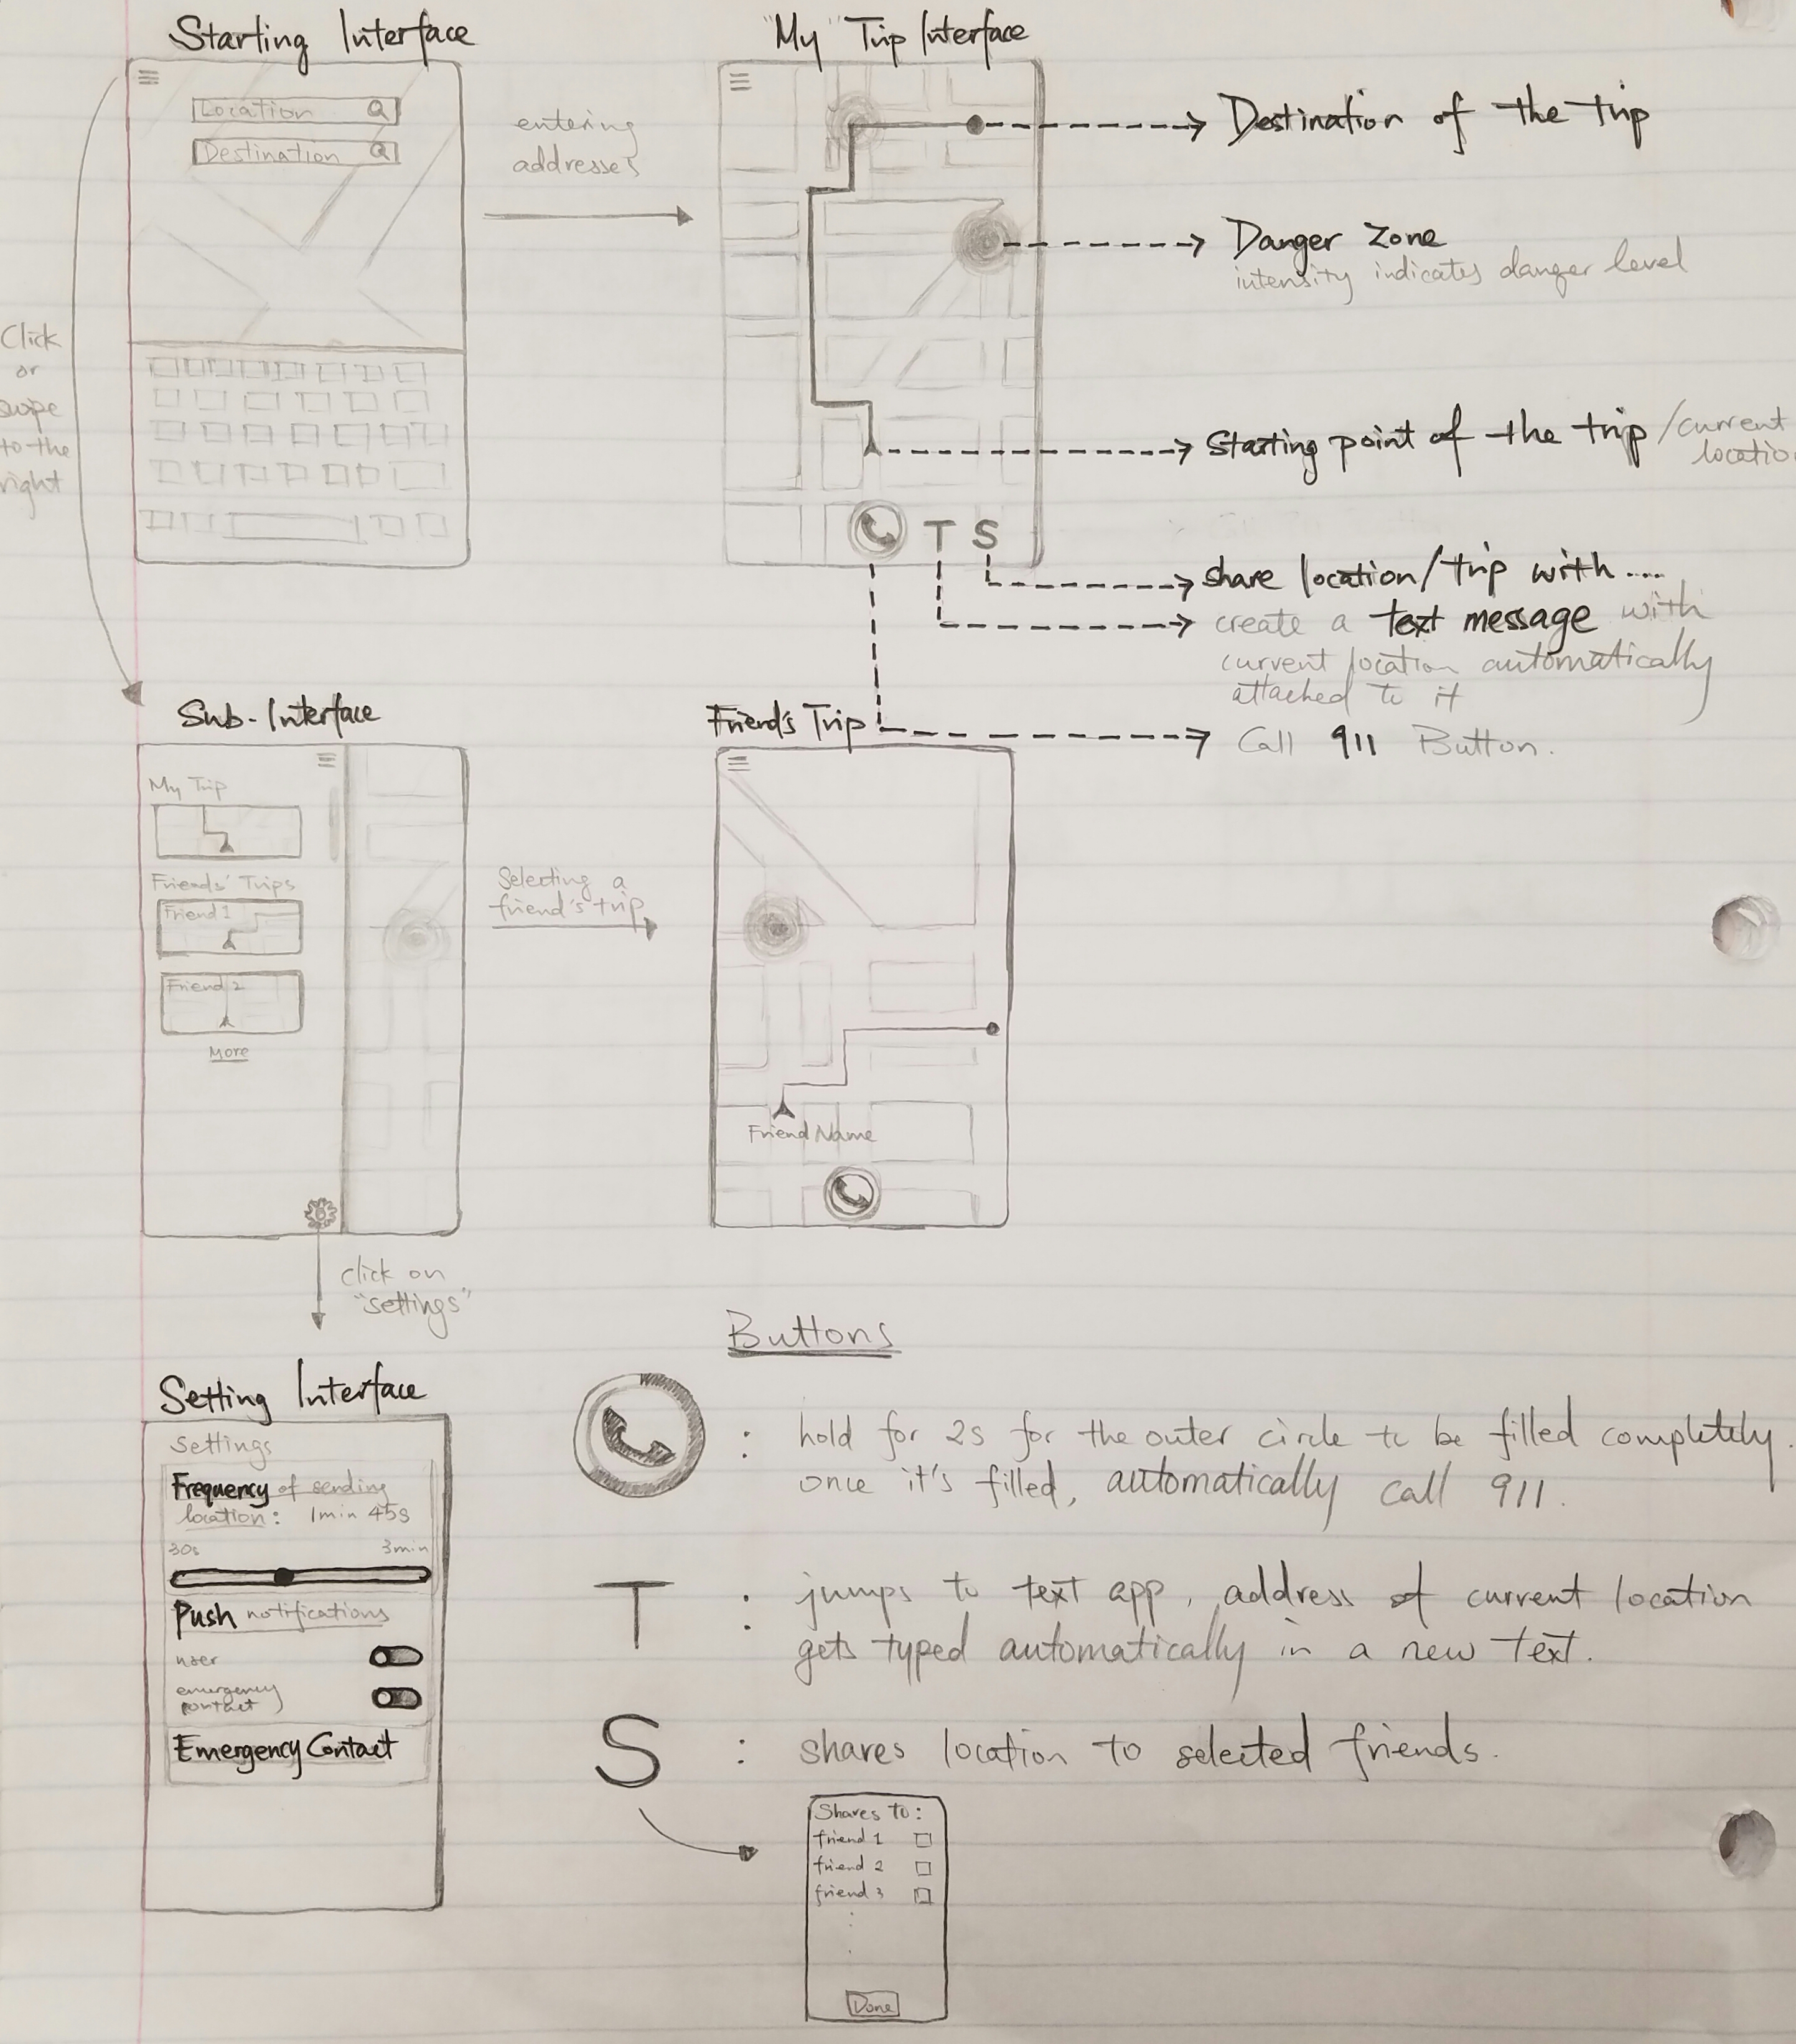 Starting Interface
Location
Destination
entering
addresses
Click
or
swipe
to the
right
"My" Trip Interface
Destination of the trip
Danger Zone
intensity indicates danger level
Starting point of the trip / current
location
T S
share location/trip with....
create a text message with
current location automatically
attached to it
Call 911 Button.
Sub-Interface
My Trip
Friends' Trips
Friend 1
Friend 2
More
Selecting a
friend's trip
Friend's Trip
Friend Name
click on
"settings"
Setting Interface
Settings
Frequency of sending
location: 1min 45s
30s 3min
Push notifications
user
emergency
contact
Emergency Contact
Buttons
: hold for 2s for the outer circle to be filled completely.
once it's filled, automatically call 911.
T : jumps to text app, address of current location
gets typed automatically in a new text.
S : shares location to selected friends.
Shares to:
friend 1
friend 2
friend 3
Done